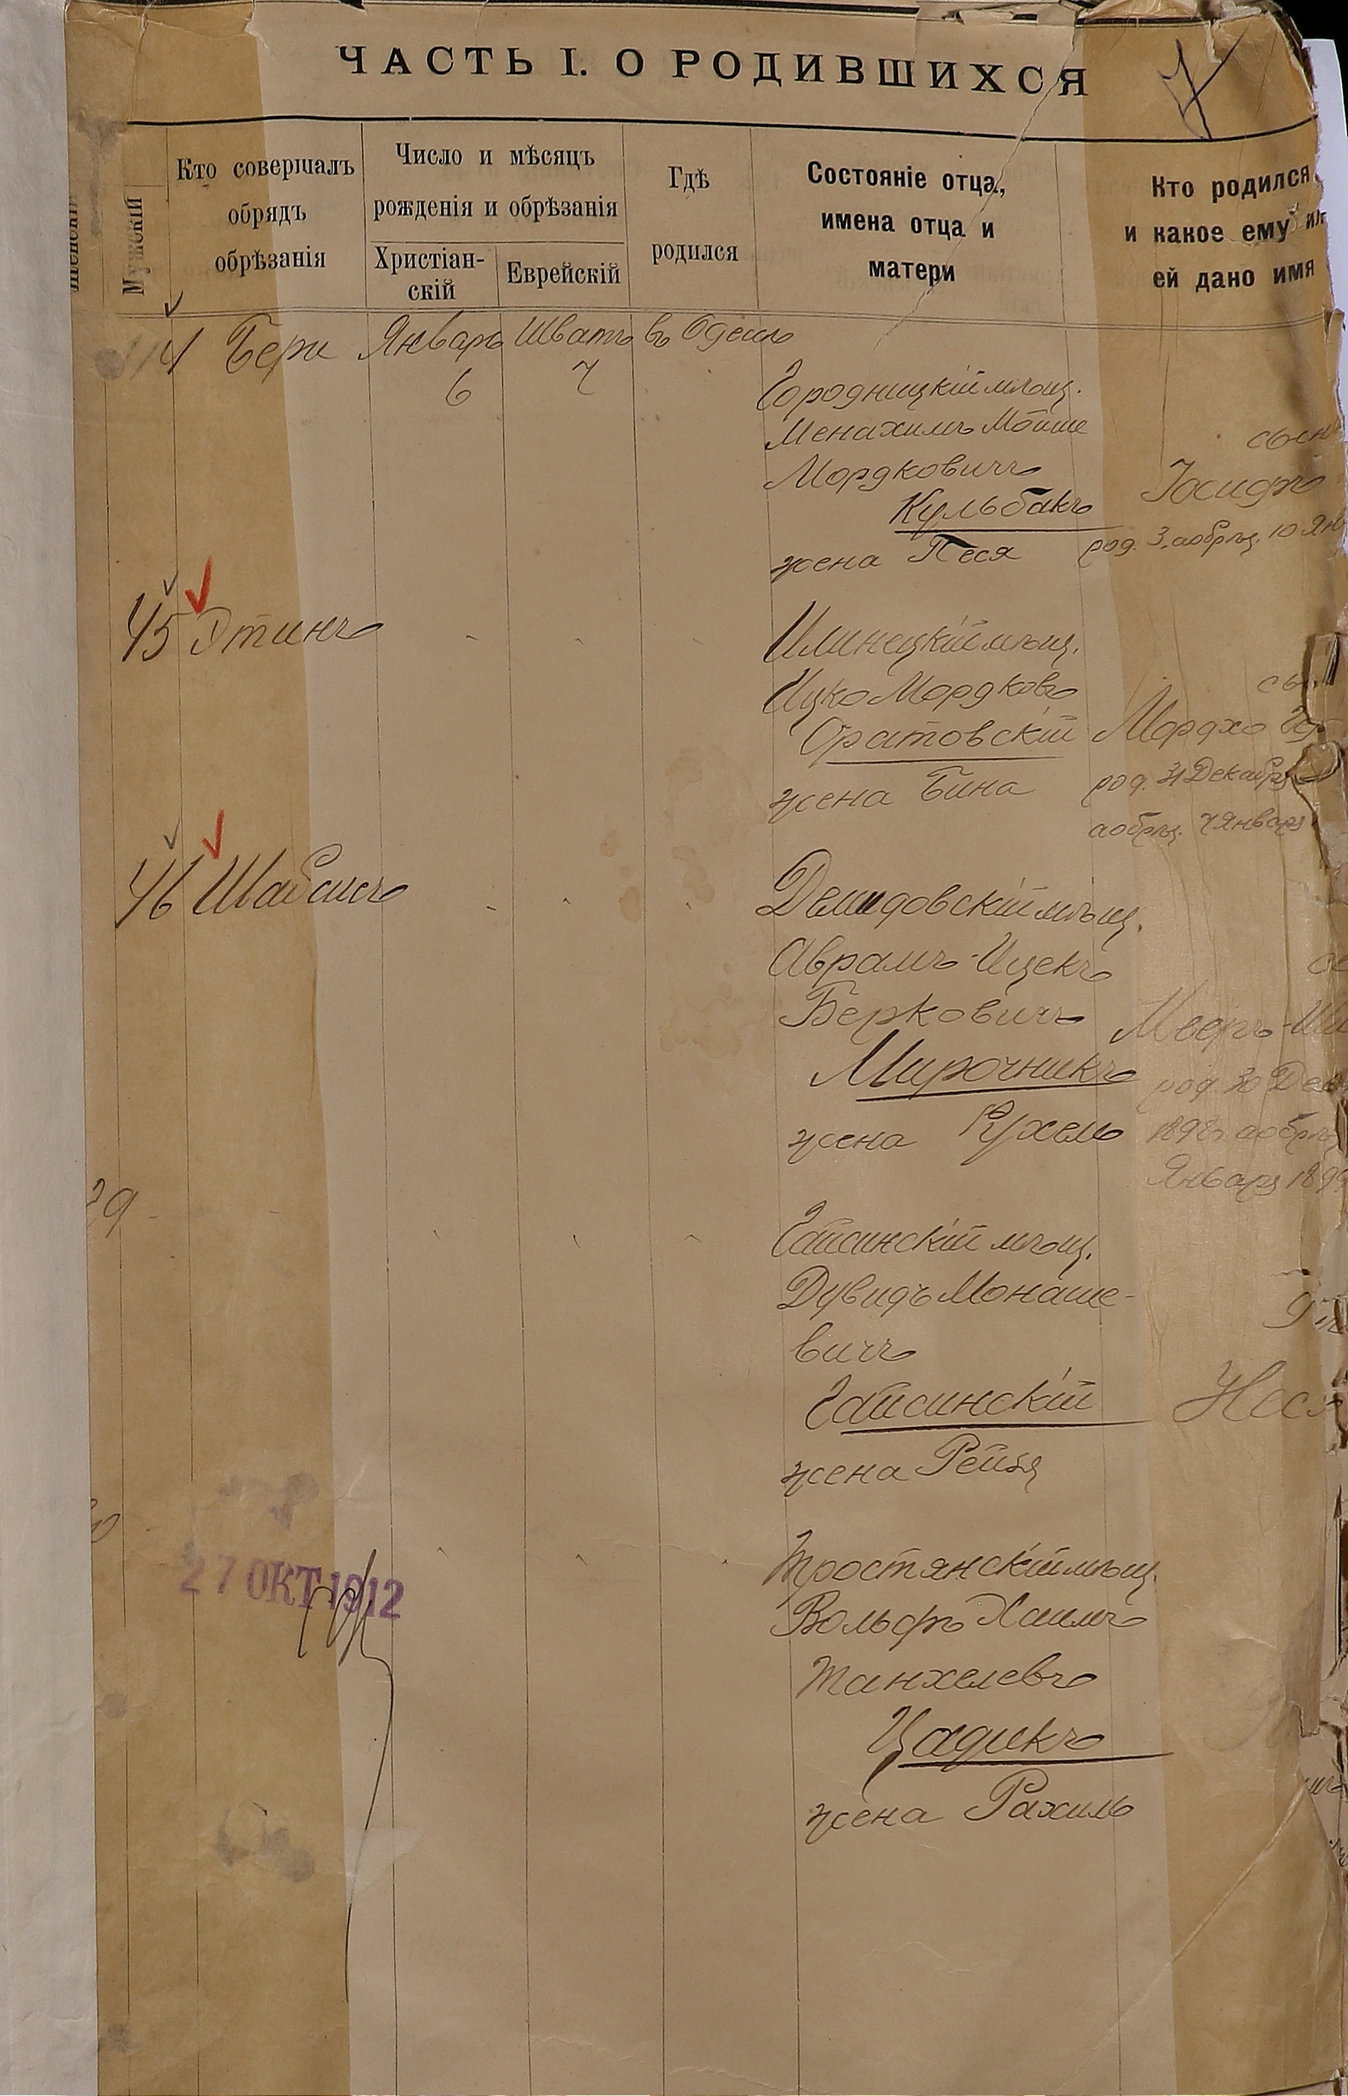 ЧАСТЬ I. О РОДИВШИХСЯ
7
Мужскій
Кто совершалъ
обрядъ
обрѣзанія
Число и мѣсяцъ
рожденія и обрѣзанія
Христіан-
скій
Еврейскій
Гдѣ
родился
Состояніе отца,
имена отца и
матери
Кто родился
и какое ему
ей дано имя
Бери Январь Шватъ въ Одессѣ
6 7
Городницкій мѣщ.
Менахимъ Мойше
Мордковичъ
Кульбакъ
жена Песя
сынъ
Іосифъ
род. 3, а обрѣз. 10 Янв
45 Этинъ
Илинецкій мѣщ.
Ицко Мордковъ
Оратовскій
жена Бина
Мордхо
род. 31 Декабря
а обрѣз. 7 Января
46 Шабсисъ
Демидовскій мѣщ.
Аврамъ-Ицекъ
Берковичъ
Мирочникъ
жена Рухель
Мееръ
род. 30 Дек
1898 г. а обрѣз
Января 1899
Гайсинскій мѣщ.
Дувидъ Монаше-
вичъ
Гайсинскій
жена Рейзя
Неся
27 ОКТ 1912
Тростянскій мѣщ.
Вольфъ Хаимъ
Танхелевъ
Цадикъ
жена Рахиль